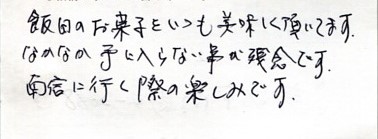 飯田のお菓子をいつも美味しく頂いてます.
なかなか手に入らない事が残念です.
南信に行く際の楽しみです.